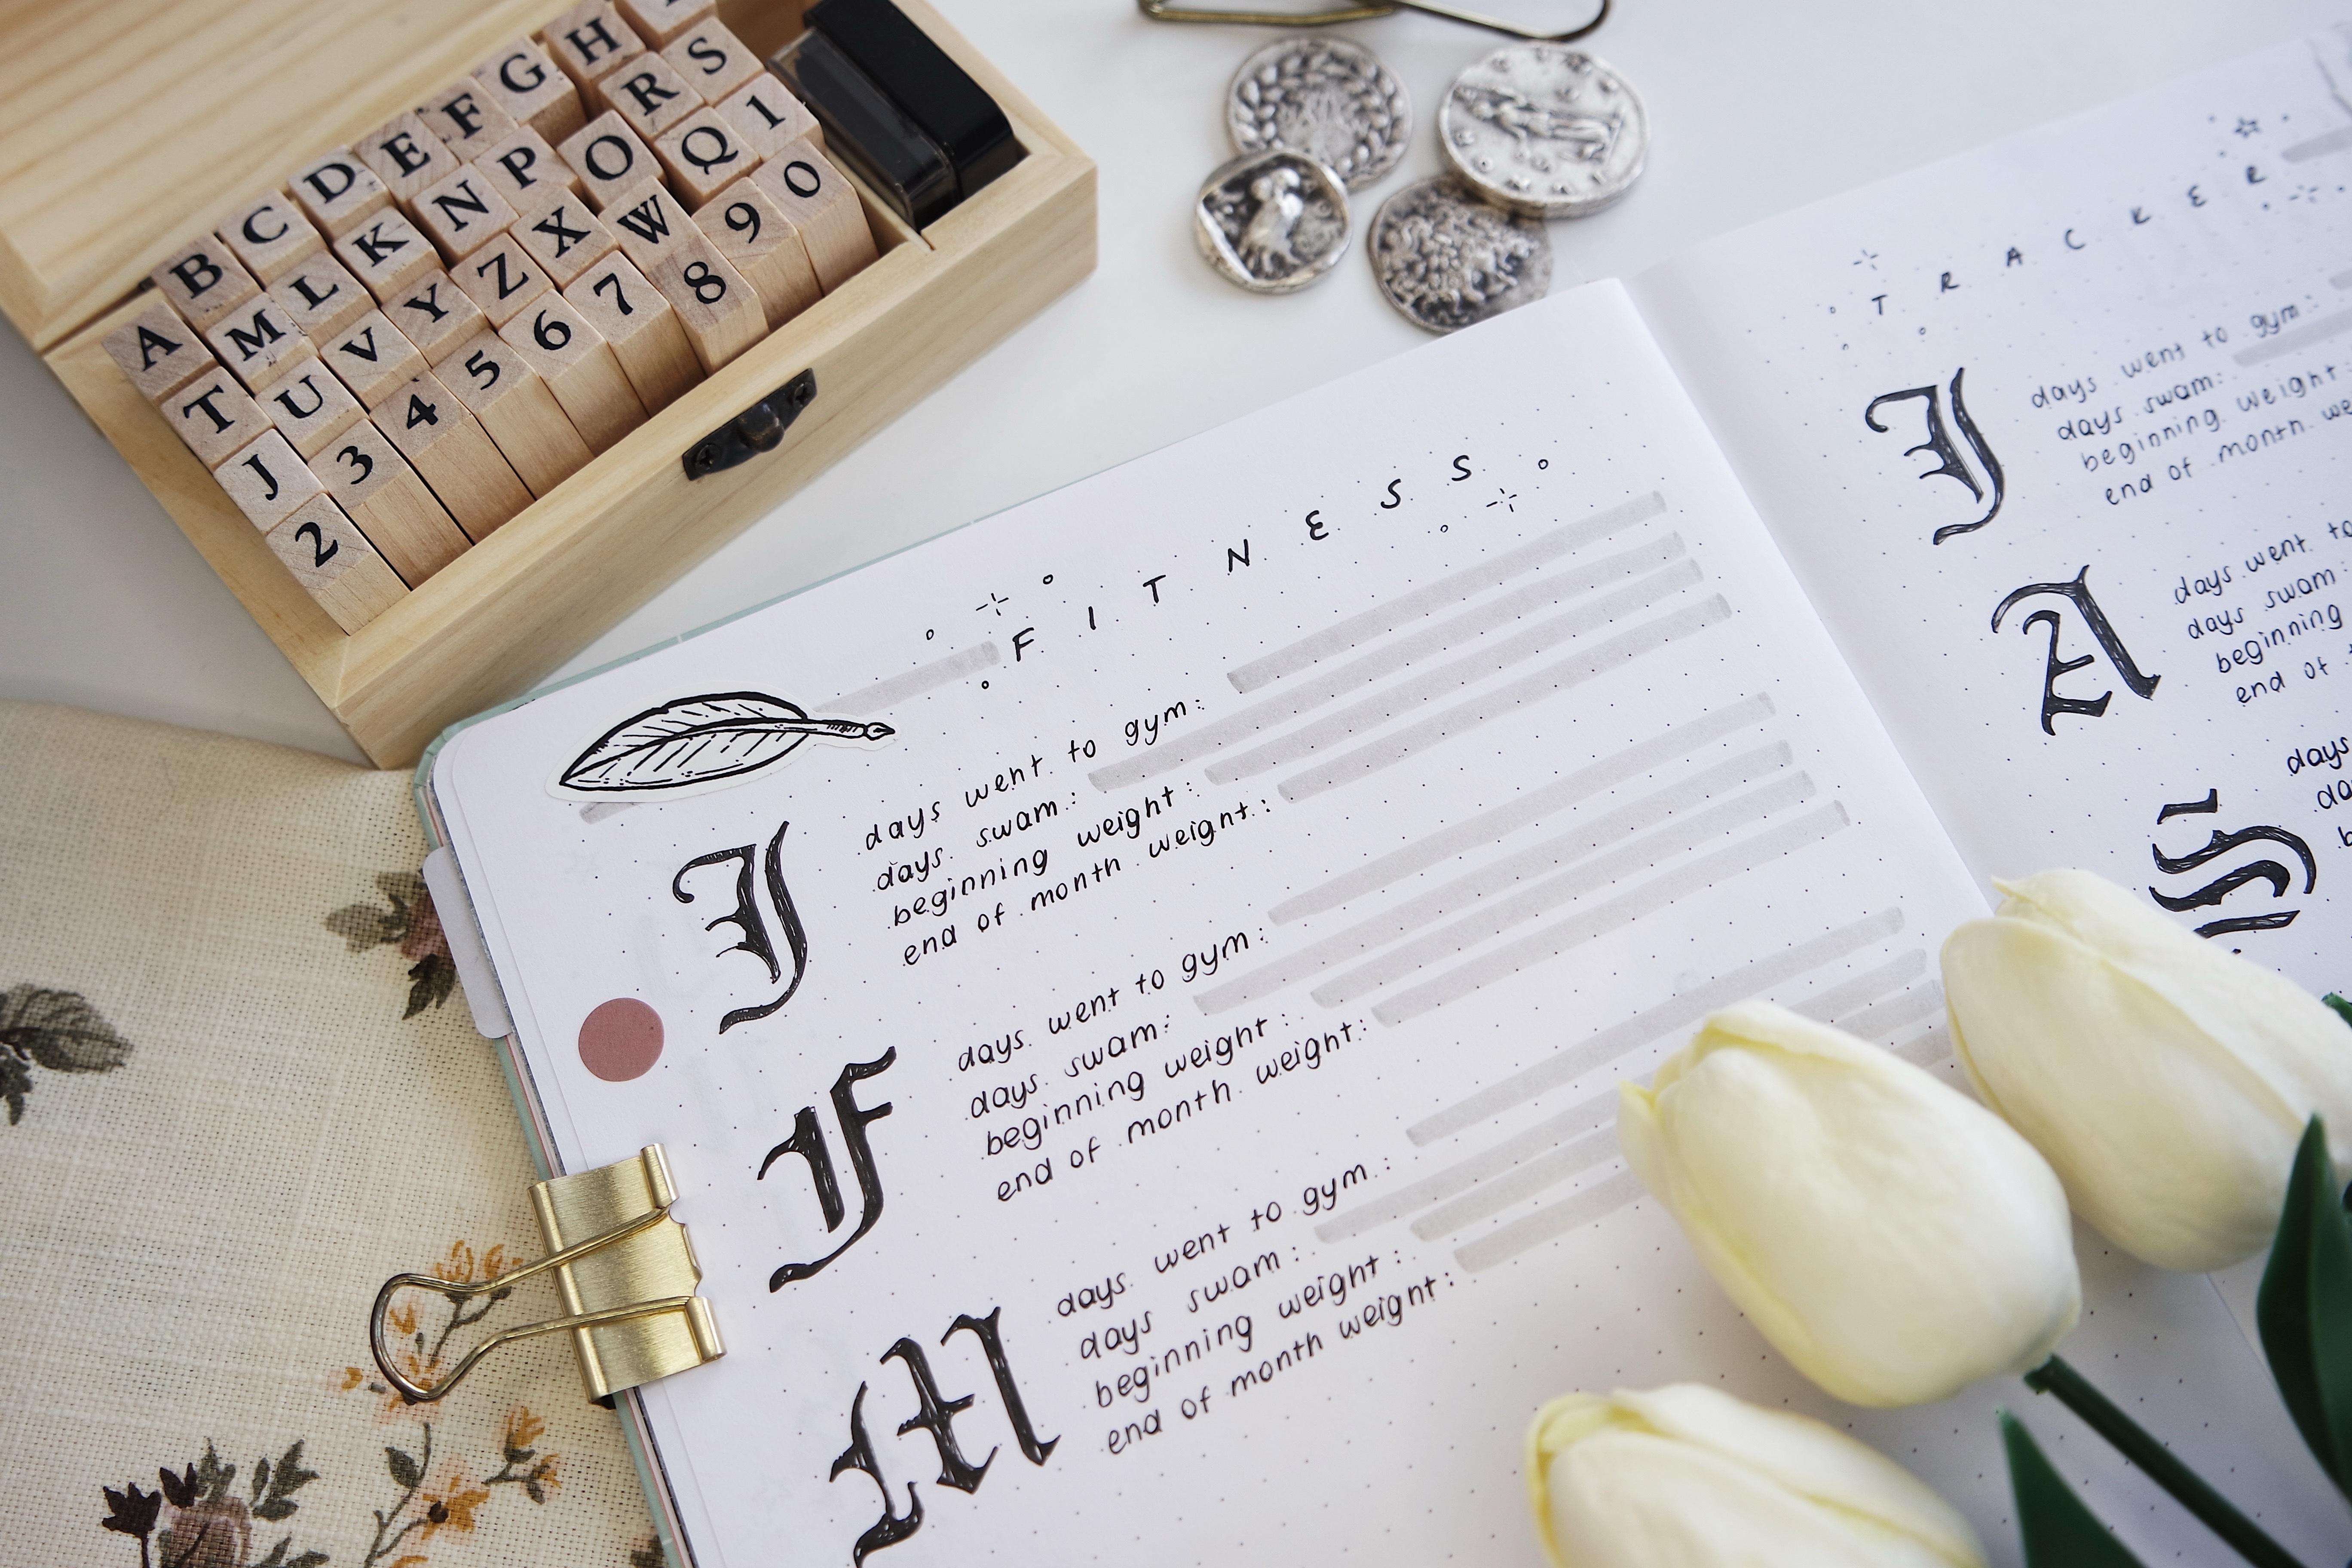 A B C D E F G H
T M L K N P O R S
J U V Y Z X W Q 1
2 3 4 5 6 7 8 9 0
FITNESS
J
days went to gym:
days swam:
beginning weight:
end of month weight:
F
days went to gym:
days swam:
beginning weight:
end of month weight:
M
days went to gym:
days swam:
beginning weight:
end of month weight:
TRACKER
J
days went to gym:
days swam:
beginning weight:
end of month we
A
days went to
days swam:
beginning
end of
S
days